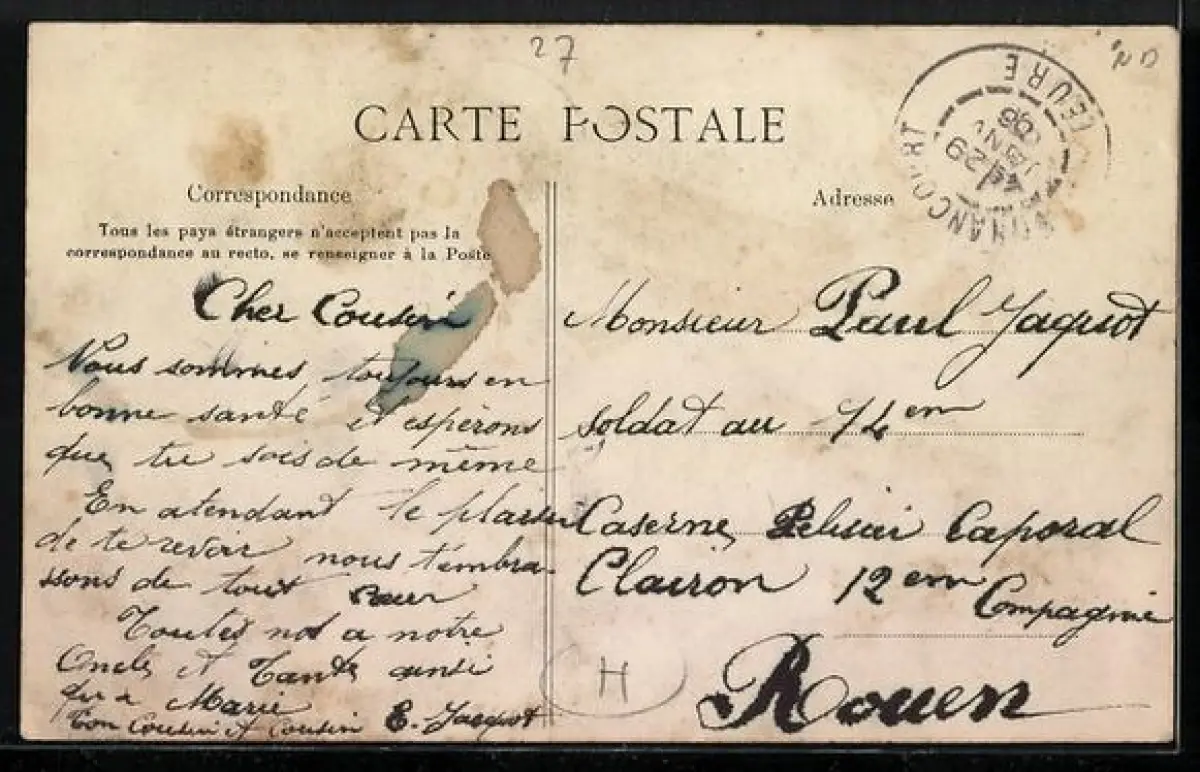 27
CARTE POSTALE
Correspondance
Tous les pays étrangers n'acceptent pas la
correspondance au recto, se renseigner à la Poste
Cher Cousin
Nous sommes toujours en
bonne santé et espérons
que tu sois de même
En atendant le plaisir
de te revoir nous t'embra-
ssons de tout
Toutes a notre
Oncle et Tante ainsi
qu'a Marie
Ton Cousin et Cousin E. Jaquot
Adresse
EURE
29
Monsieur Paul Jaquot
soldat au 74em
Caserne Pelisier Caporal
Clairon 12em
Compagnie
Rouen
H